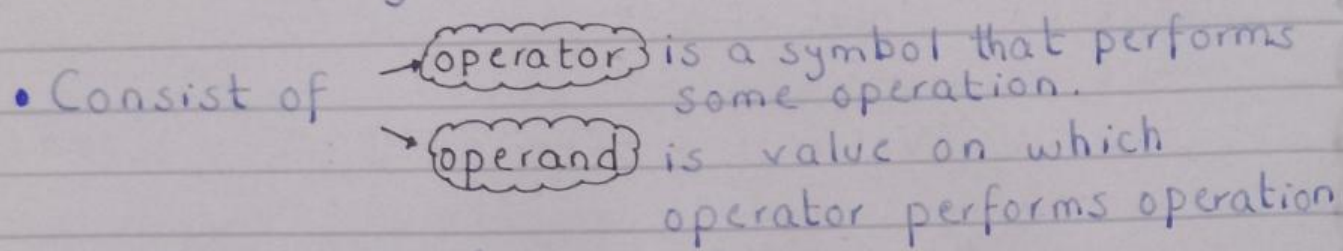 operator is a symbol that performs
• Consist of some operation.
operand is value on which
operator performs operation